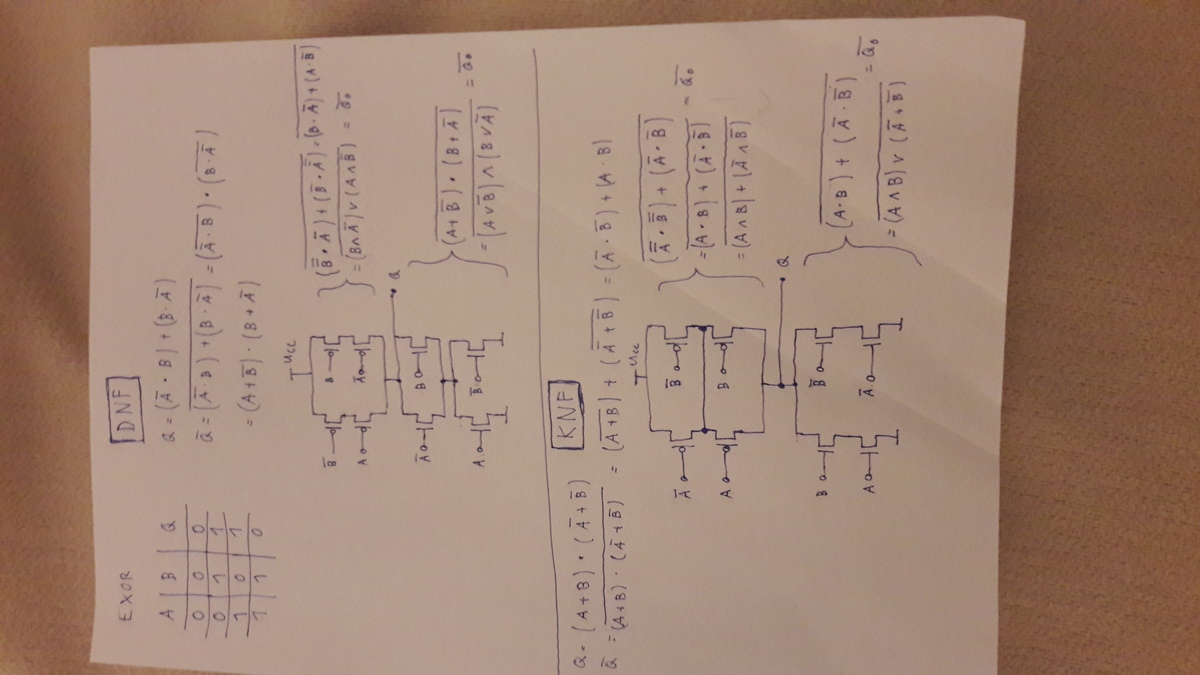 EXOR
A | B | Q
0 | 0 | 0
0 | 1 | 1
1 | 0 | 1
1 | 1 | 0
DNF
Q = (A̅ · B) + (B · A̅)
Q̅ = (A̅ · B) + (B · A̅) = (A̅ · B) · (B · A̅)
= (A + B̅) · (B + A̅)
Ucc
B̅ B
A A̅
Q
A̅ B
A B̅
(B̿ · A̅) + (B̅ · A̿) = (B · A̅) + (A · B̅)
= (B ∧ A̅) ∨ (A ∧ B̅) = Q̅₀
(A + B̅) · (B + A̅)
= (A ∨ B̅) ∧ (B ∨ A̅) = Q̅₀
KNF
Q = (A + B) · (A̅ + B̅)
Q̅ = (A + B) · (A̅ + B̅) = (A + B) + (A̅ + B̅) = (A̅ · B̅) + (A · B)
Ucc
A̅ B̅
A B
Q
B B̅
A A̅
(A̿ · B̿) + (A̅ · B̅)
= (A · B) + (A̅ · B̅) = Q̅₀
= (A ∧ B) + (A̅ ∧ B̅)
(A · B) + (A̅ · B̅)
= (A ∧ B) ∨ (A̅ + B̅) = Q̅₀